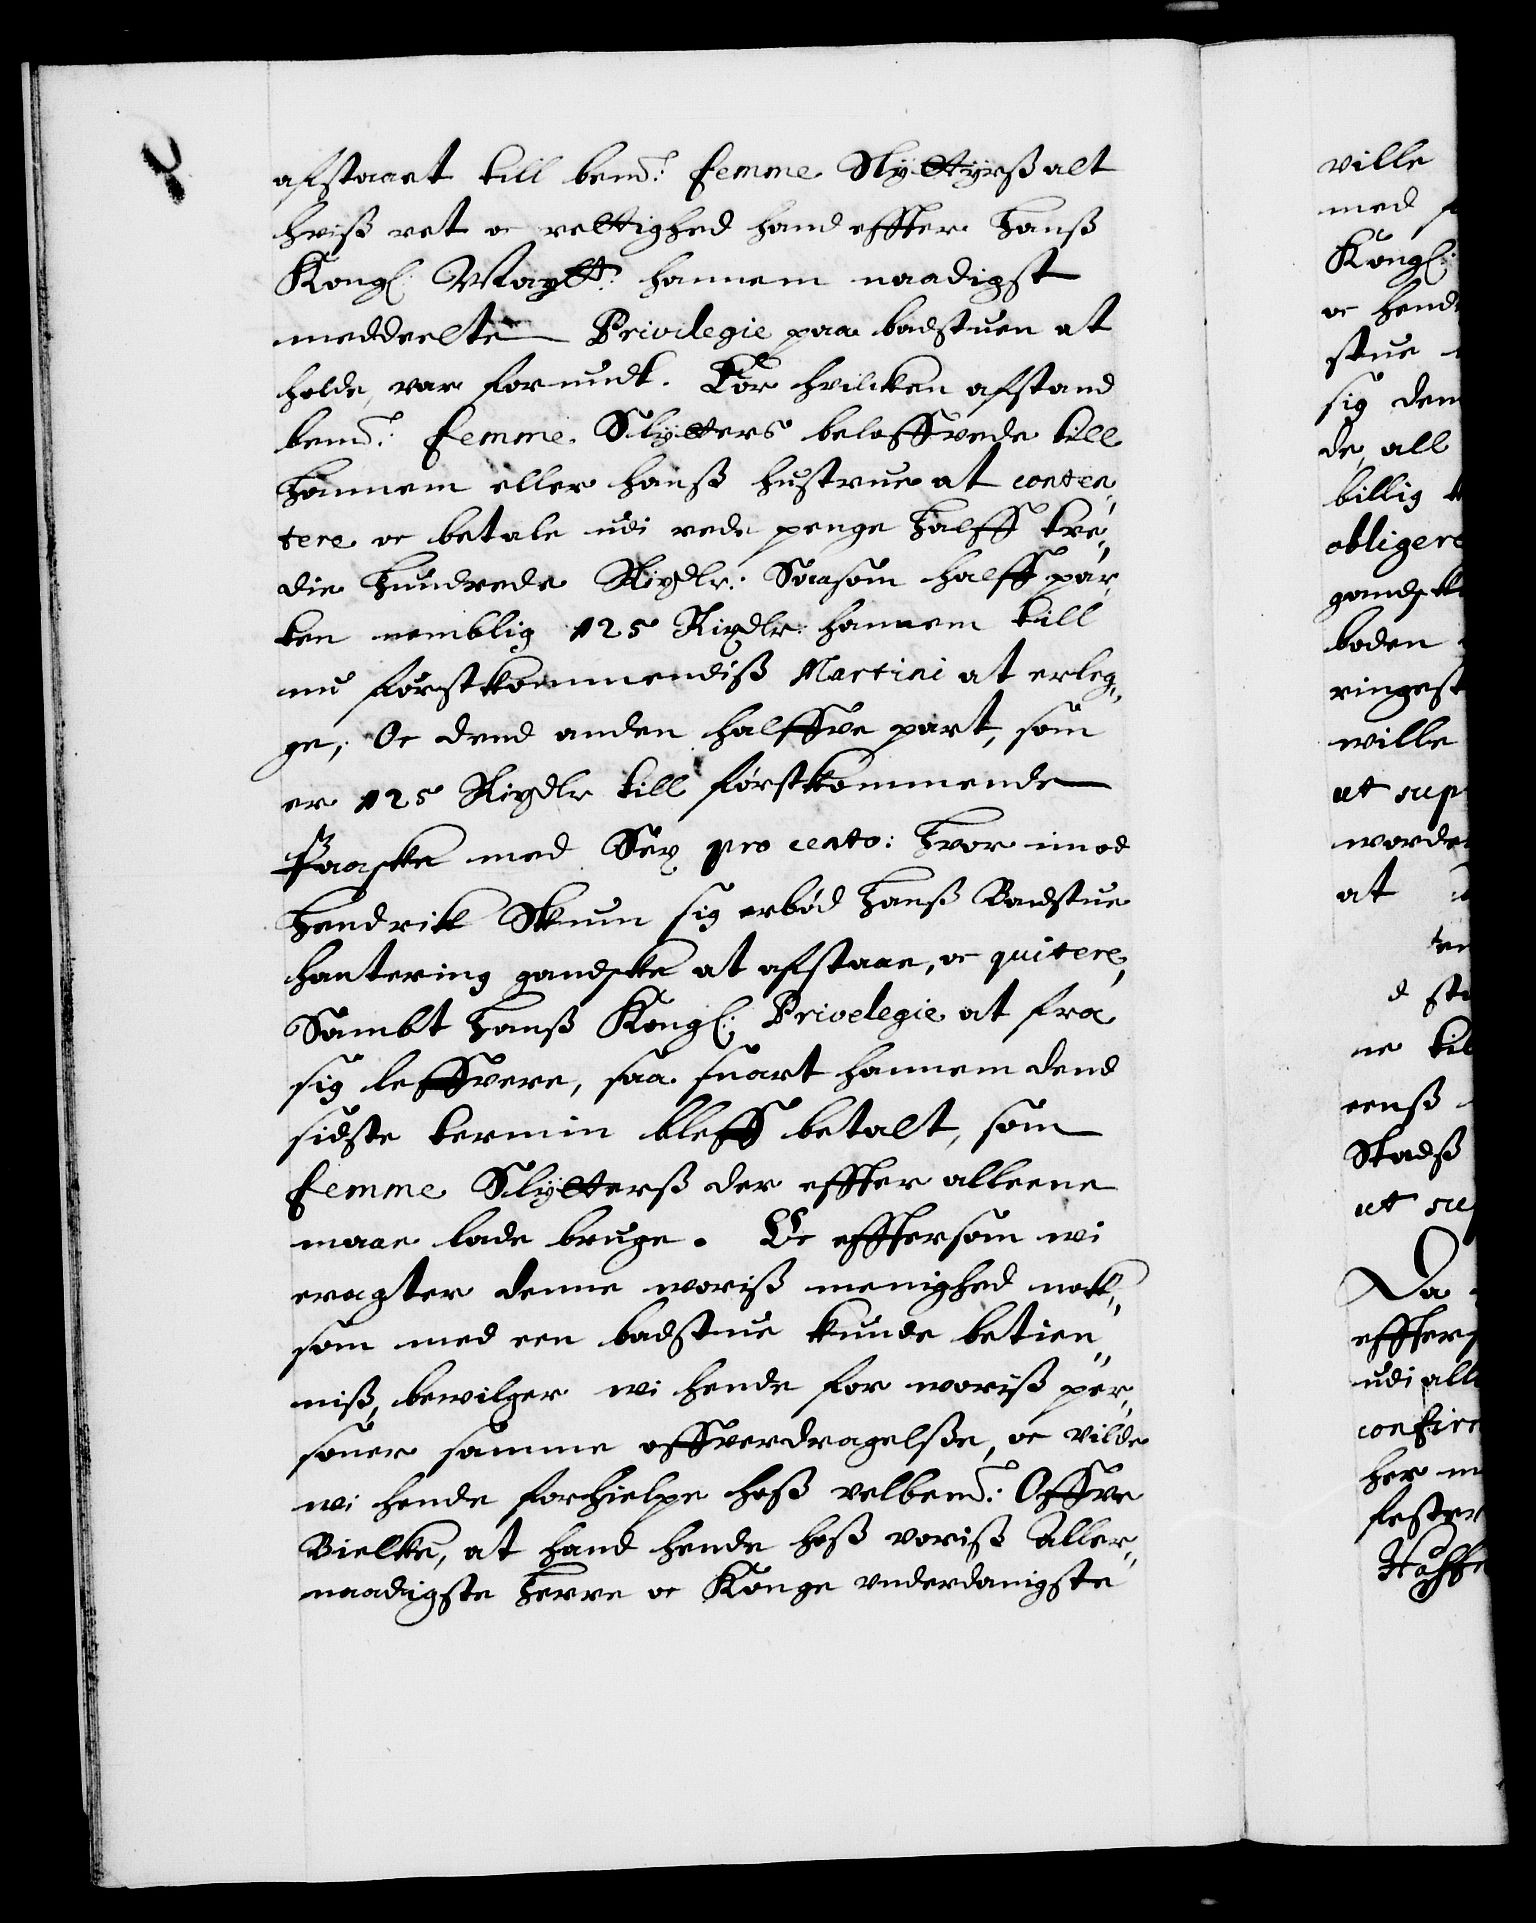 afstaaet till bemd: Femme Slÿttyrß alt
hviß ret oc rettighed hand effter Hanß
Kongl: Maytt: hannem naadigst
meddeelte Privilegie paa badstuen at
holde, var forundt. For hvilcken afstand
bemd: Femme Slÿtters beloffvede till
Hannem eller hanß hustrue at conten„
tere oc betale udi rede penge Halff tre„
die Hundrede Rixdlr: Saasom halff par„
ten nemblig 125 Rixdlr: hannem till
nu førstkommendiß Martini at erleg„
ge, Oc dend anden halffve part, som
er 125 Rixdlr till førstkommende
Paaske med Sex pro cento: Hvor imod
Hendrik Skum sig erbød Hanß Badstue
hantering gandske at afstaae, oc quitere,
Sambt Hanß Kongl: Privelegie at fra
sig leffvere, saa snart hannem dend
sidste termin bleff betalt, som
Femme Slÿtterß der effter alleene
maae lade bruge. Oc efftersom wi
eragter denne woriß menighed nok„
som med een badstue kunde betien„
niß, bewilger wi hende for woriß per„
soner samme offverdragelße, oc vilde
wi hende forhielpe hoß velbemd: Offve
Bielke, at hand hende hoß voriß Aller„
naadigste Herre oc Konge underdanigste
ville
med
Kongl:
oc hend
stue
sig dem
de, all
billig
obligere
gandske
boden
ringest
wille
ut sup
worde
at
d
ne till
eenß
Stadß
ut su
Da
effters
udi all
confir
her
fester